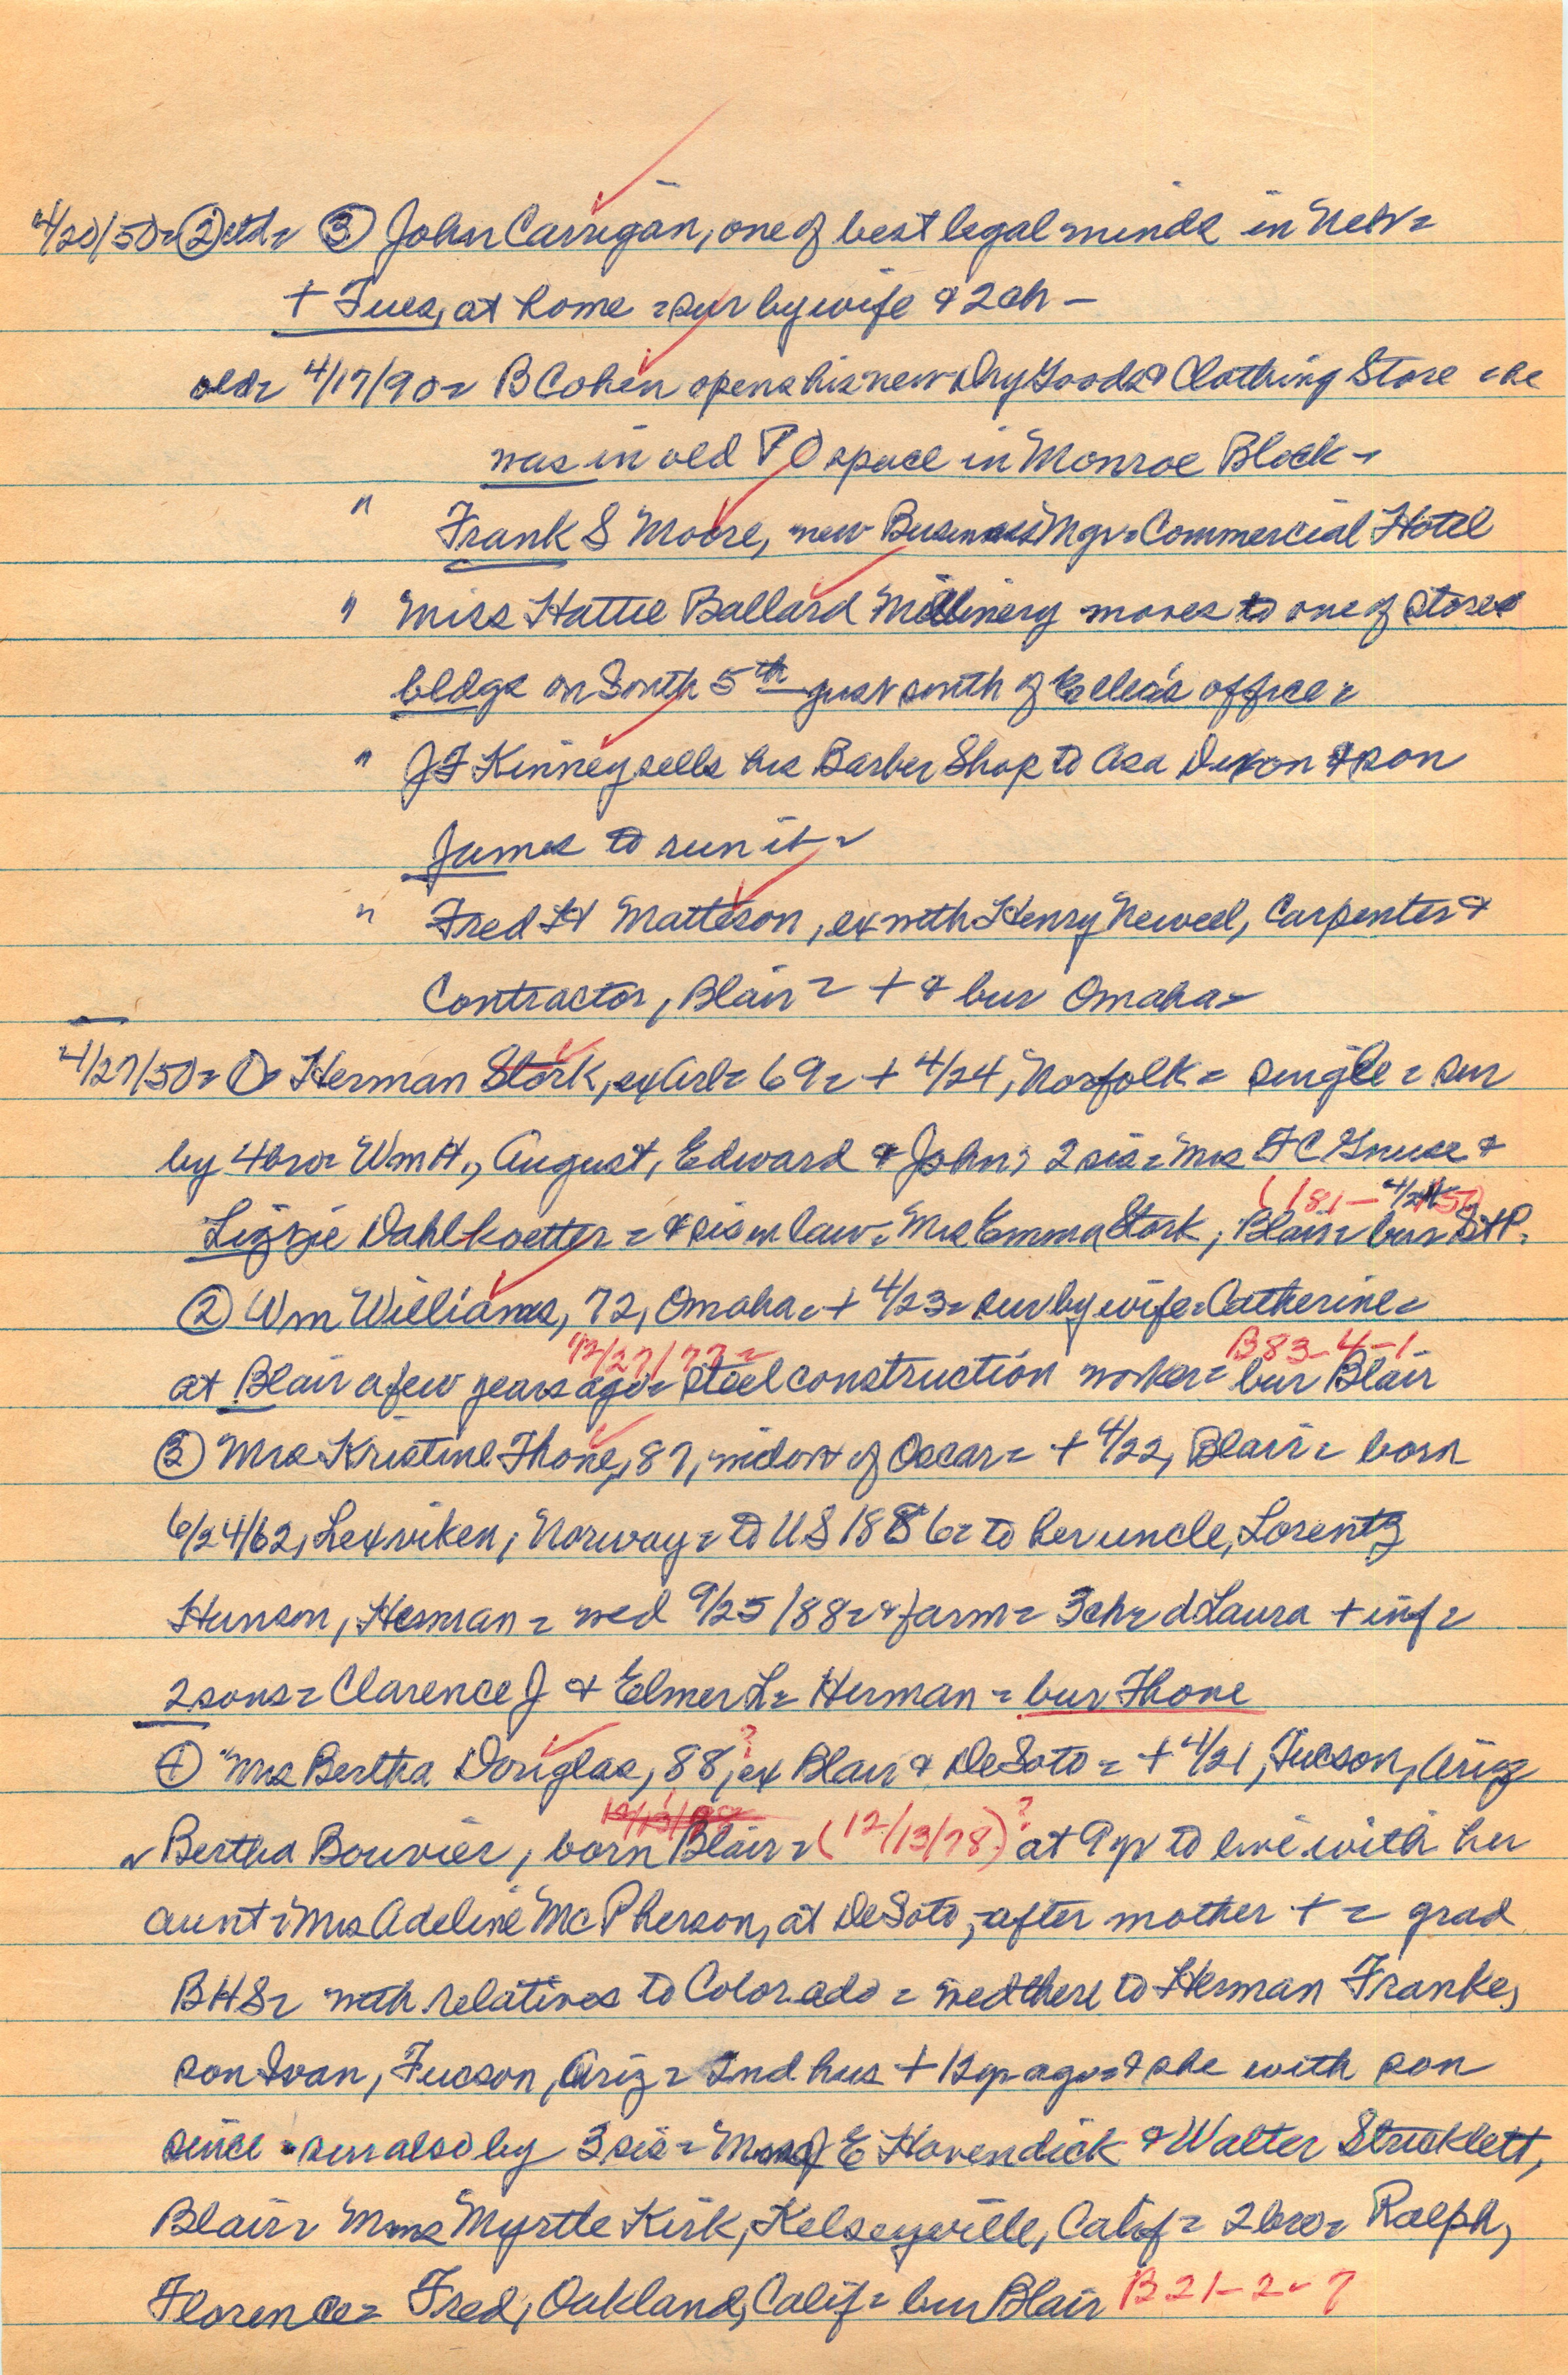 4/20/50= ② ctd= ③ John Carrigan, one of best legal minds in Neb=
+ Tues, at home = sur by wife & 2 ch -
old= 4/17/90= B Cohen opens his new Dry Goods & Clothing Store = he
was in old P O space in Monroe Block -
" Frank S Moore, new Business Mgr = Commercial Hotel
" Miss Hattie Ballard Millinery moves to one of store
bldgs on South 5th just south of Eller's office =
" J F Kinney sells his Barber Shop to Asa Dixon & son
James to run it =
" Fred H Matteson, ex with Henry Newell, Carpenter &
Contractor, Blair = + & bur Omaha =
4/27/50= ① Herman Stork, ex Arl= 69= + 4/24, Norfolk = single = sur
by 4 bro= Wm H., August, Edward & John; 2 sis = Mrs F C Gnuse &
(181 - 4/24/50)
Lizzie Dahlkoetter = & sis in law = Mrs Emma Stork, Blair = bur St P.
② Wm Williams, 72, Omaha = + 4/23 = sur by wife = Catherine =
12/27/77 = B83-4-1
at Blair a few years ago = steel construction worker = bur Blair
③ Mrs Kristine Thone, 87, widow of Oscar = + 4/22, Blair = born
6/24/62, Lexviken, Norway = to US 1886 = to her uncle, Lorentz
Hunson, Herman = wed 9/25/88 = & farm = 3 ch = d Laura + inf =
2 sons = Clarence J & Elmer L = Herman = bur Thone
④ Mrs Bertha Douglas, 88,? ex Blair & DeSoto = + 4/21, Tucson, Ariz
= Bertha Bouvier, born Blair = (12/13/78)? at 9 yr to live with her
aunt = Mrs Adeline McPherson, at DeSoto, after mother + = grad
BHS = with relatives to Colorado = wed there to Herman Franke,
son Ivan, Tucson, Ariz = 2nd hus + 12 yr ago = & she with son
since = sur also by 3 sis = Mmes J E Hovendick & Walter Stricklett,
Blair = Mmes Myrtle Kirk, Kelseyville, Calif = 2 bro = Ralph,
Florence = Fred, Oakland, Calif = bur Blair B21-2-7